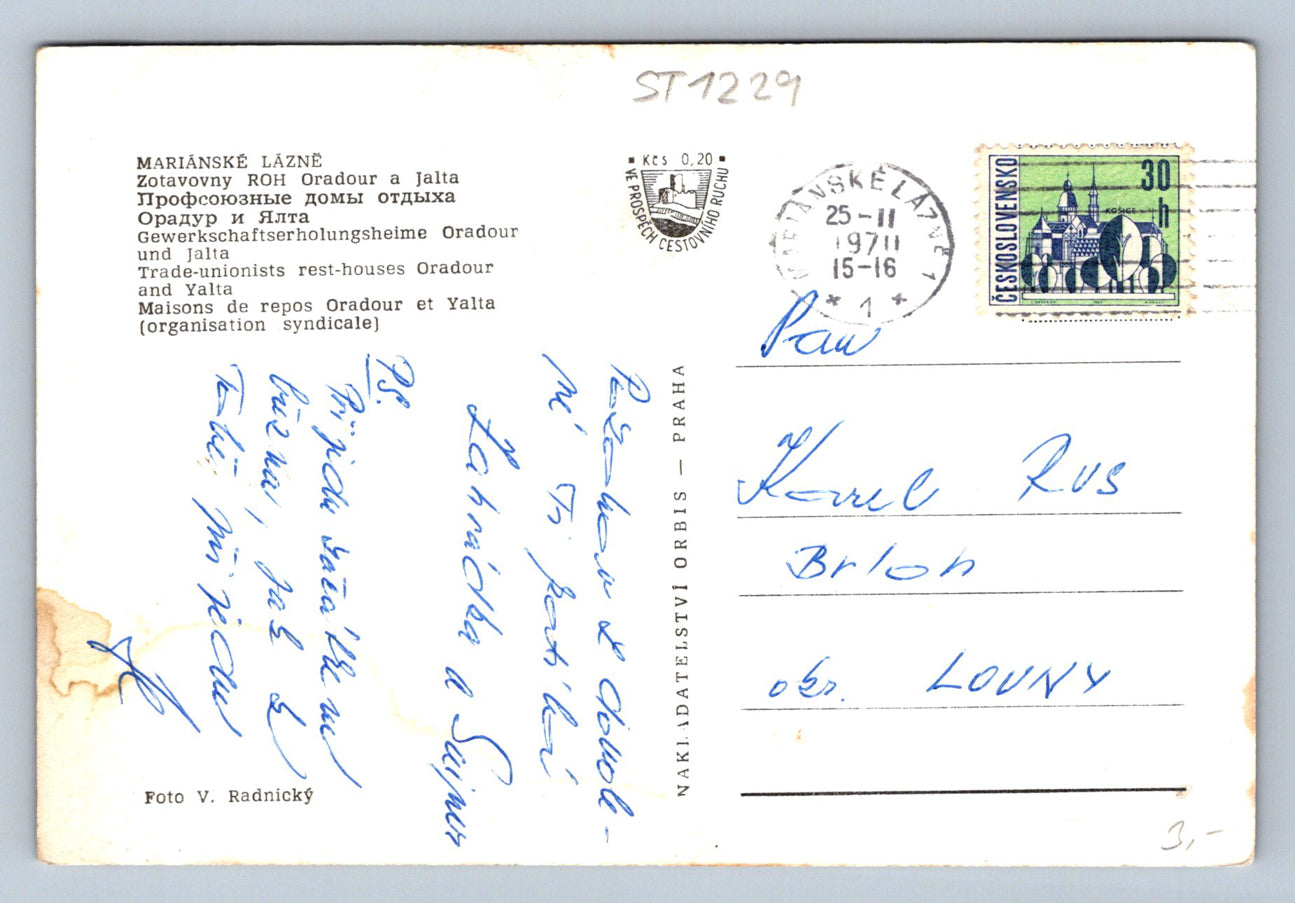 ST1229
MARIÁNSKÉ LÁZNĚ
Zotavovny ROH Oradour a Jalta
Профсоюзные домы отдыха
Орадур и Ялта
Gewerkschaftserholungsheime Oradour
und Jalta
Trade-unionists rest-houses Oradour
and Yalta
Maisons de repos Oradour et Yalta
(organisation syndicale)
Kčs 0,20
VE PROSPĚCH CESTOVNÍHO RUCHU
MARIÁNSKÉ LÁZNĚ 1
25-11
1970
15-16
* 1 *
ČESKOSLOVENSKO
30
h
KOŠICE
Pozdrav z dovole-
né Ti posílá
Zahrádka a
PS.
Přijdu
jak k
Tobě přijedu
NAKLADATELSTVÍ ORBIS — PRAHA
Pan
Karel Rus
Brloh
okr. LOUNY
Foto V. Radnický
3,-